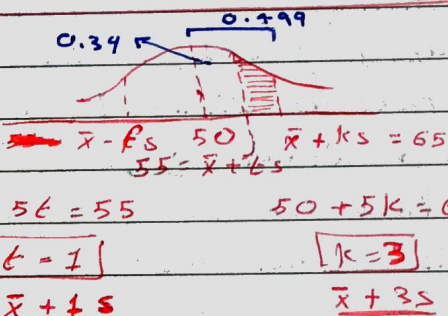 0.499
0.34
x̄ - ts 50 x̄ + ks = 65
55 = x̄ + ts
5t = 55 50 + 5k =
t = 1 k = 3
x̄ + 1s x̄ + 3s